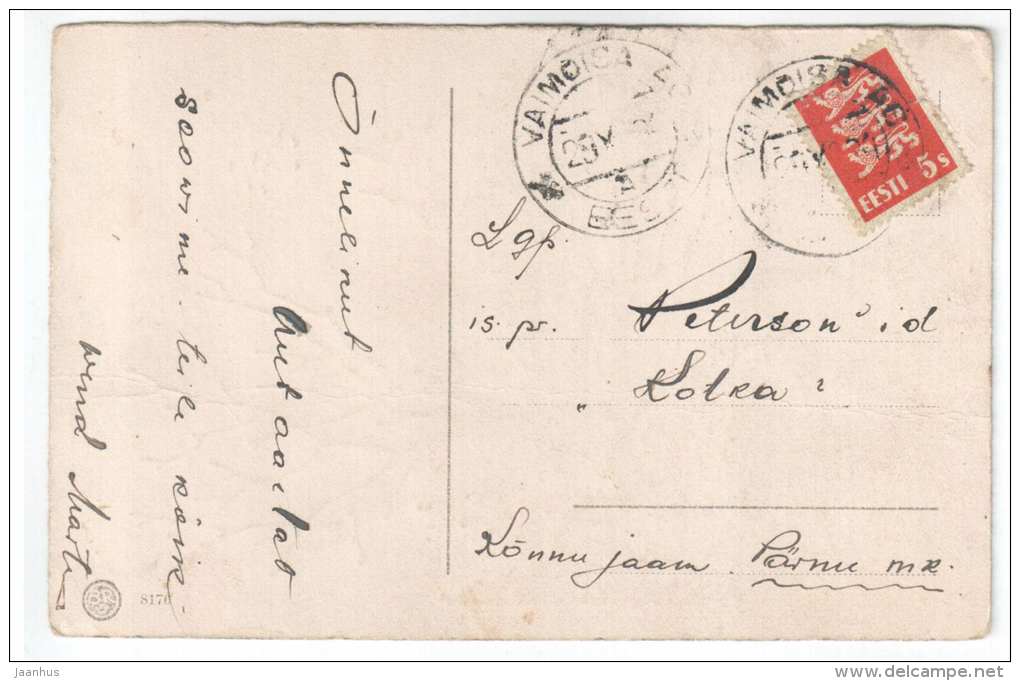 Õnnelikut
Uut aastat
soovime teile kõik
wend Marti
8176
VAIMOISA
EESTI
VAIMOISA
EESTI 5s
Lgp.
is. pr. Peterson'id
„Kotka"
Kõnnu jaam. Pärnu mk.
Jaanhus
www.delcampe.net